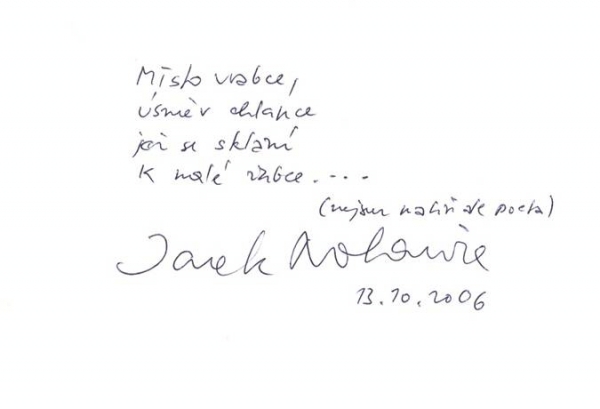 Místo vrabce,
úsměv chlapce
se sklání
k malé žabce. ...
(nejsem malíř ale poeta)
Jarek Nohavica
13.10.2006